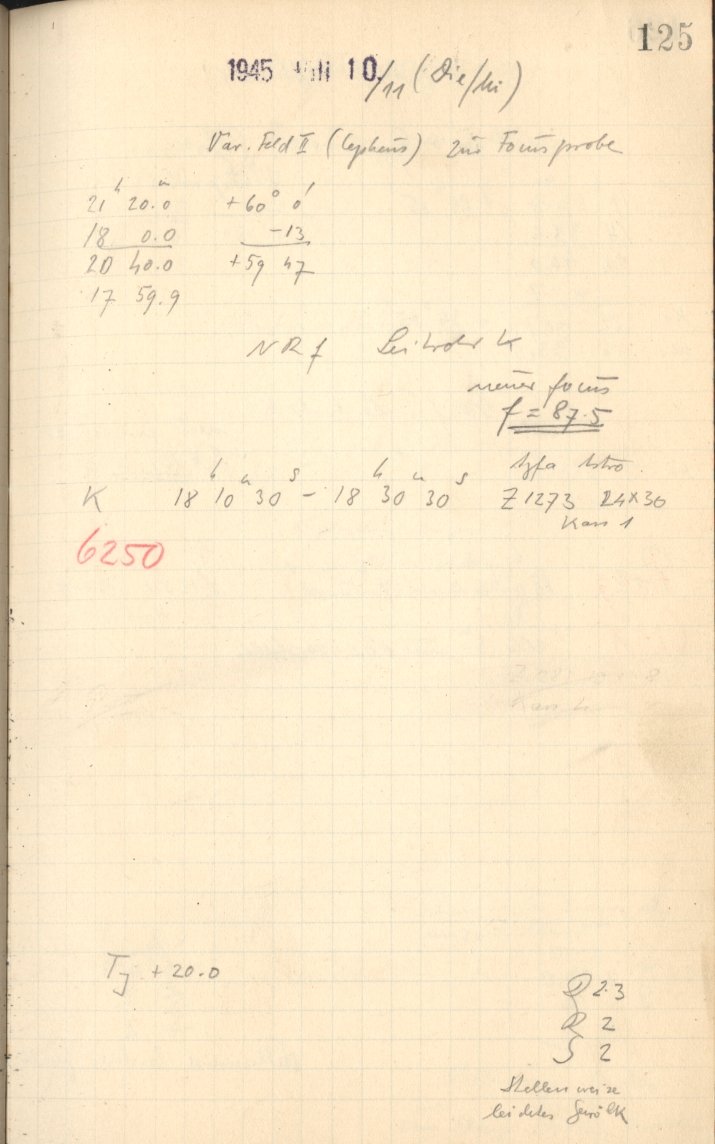 125
1945 Juli 10./11 (Die/Mi)
Var. Feld II (Cepheus) zur Focusprobe
21h 20.0m +60° 0'
18 0.0 -13
20 40.0 +59 47
17 59.9
NR f Leitrohr K
neuer focus
f = 87.5
K 18h 10m 30s - 18h 30m 30s Z 1273 24x30
Kass 1
6250
Tj + 20.0
2.3
R 2
S 2
Stellenweise
leichtes Gewölk